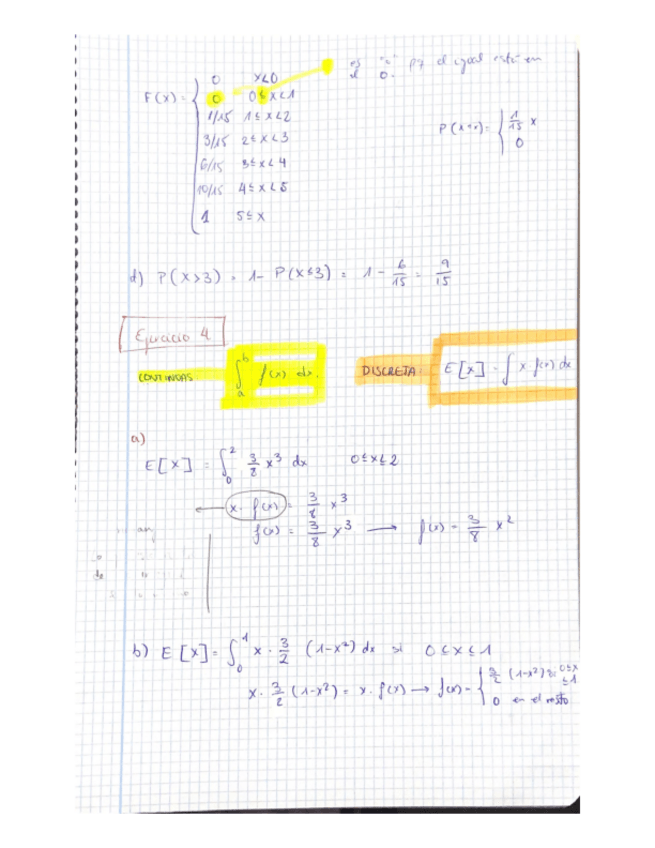 0 x<0
F(x) = 0 0 ≤ x < 1
1/15 1 ≤ x < 2
3/15 2 ≤ x < 3
6/15 3 ≤ x < 4
10/15 4 ≤ x < 5
1 5 ≤ x
el igual está en
el 0.
1/15 x
0
d) P(x>3) = 1- P(x≤3) = 1 - 6/15 = 9/15
Ejercicio 4
CONTINUAS ∫_a^b f(x) dx.
DISCRETA: E[x] = ∫ x f(x) dx
a)
E[x] = ∫_0^2 3/8 x³ dx 0≤x≤2
x. f(x) = 3/8 x³
f(x) = 3/8 x³ → f(x) = 3/8 x²
b) E[x] = ∫_0^1 x · 3/2 (1-x²) dx si 0 ≤ x ≤ 1
x · 3/2 (1-x²) = x · f(x) → f(x) = 3/2 (1-x²) si 0≤x≤1
0 en el resto